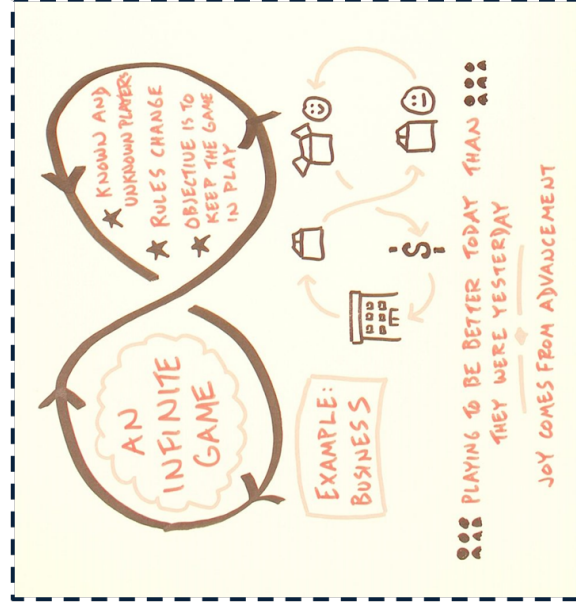 AN
INFINITE
GAME
KNOWN AND
UNKNOWN PLAYERS
RULES CHANGE
OBJECTIVE IS TO
KEEP THE GAME
IN PLAY
EXAMPLE:
BUSINESS
$
PLAYING TO BE BETTER TODAY THAN
THEY WERE YESTERDAY
JOY COMES FROM ADVANCEMENT